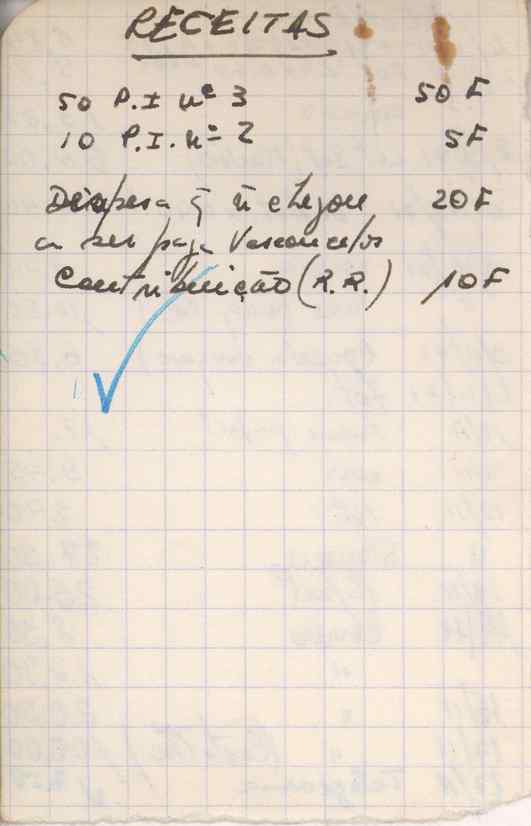 RECEITAS
50 P.I nº 3 50 F
10 P.I. nº 2 5F
Despesa q̃ ñ chegou 20F
a ser paga Vasconcelos
Contribuição (R.R.) 10F